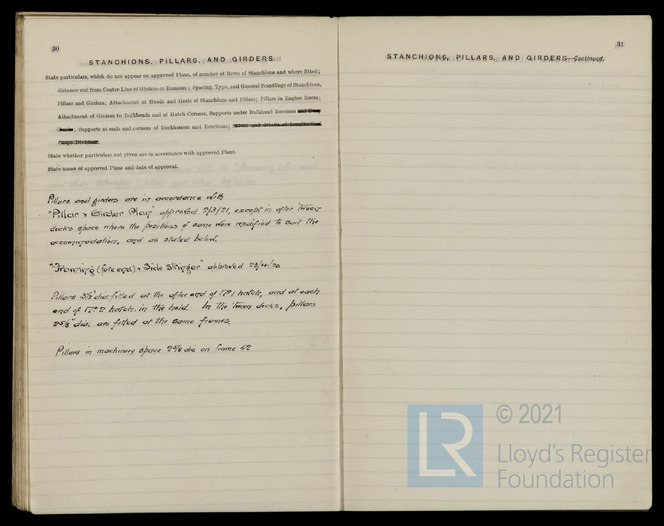 30
STANCHIONS, PILLARS, AND GIRDERS.
State particulars, which do not appear on approved Plans, of number of Rows of Stanchions and where fitted;
distance out from Centre Line of Girders or Runners; Spacing, Type, and General Scantlings of Stanchions,
Pillars and Girders; Attachment at Heads and Heels of Stanchions and Pillars; Pillars in Engine Room;
Attachment of Girders to Bulkheads and at Hatch Corners, Supports under Bulkhead Recesses and Deep
Tanks; Supports at ends and corners of Deckhouses and Erections;
State whether particulars not given are in accordance with approved Plans.
State name of approved Plans and date of approval.
Pillars and girders are in accordance with
"Pillar & Girder Plan" approved 2/3/21, except in after 'tween
decks space where the positions of same were modified to suit the
accommodation, and as stated below.
"Framing (fore end) & Side Stringer" approved
Pillars dia. fitted at the after end of No 1 hatch, and at each
end of No 2 hatch in the hold. In the tween decks, pillars
2⅝" dia. are fitted at the same frames.
Pillars in machinery space 2⅝ dia on frame 42
31
STANCHIONS, PILLARS, AND GIRDERS—Continued.
LR
© 2021
Lloyd's Register
Foundation